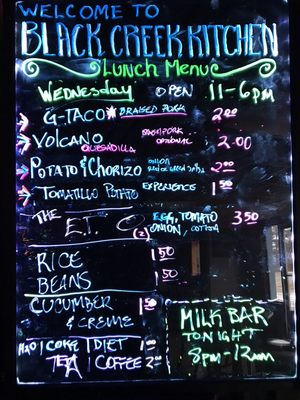 WELCOME TO
BLACK CREEK KITCHEN
LUNCH MENU
WEDNESDAY OPEN 11-6PM
G-TACO BRAISED PORK 2.00
VOLCANO QUESADILLA OPTIONAL 2.00
POTATO & CHORIZO ONION 2.00
TOMATILLO POTATO EXPERIENCE 1.50
THE E.T. (2) EGG, TOMATO 3.50
ONION, COTIJA
RICE 1.50
BEANS 1.50
CUCUMBER 1.50
& CREME
H2O | COKE | DIET 1.00
TEA | COFFEE 2.00
MILK BAR
TONIGHT
8PM-12AM